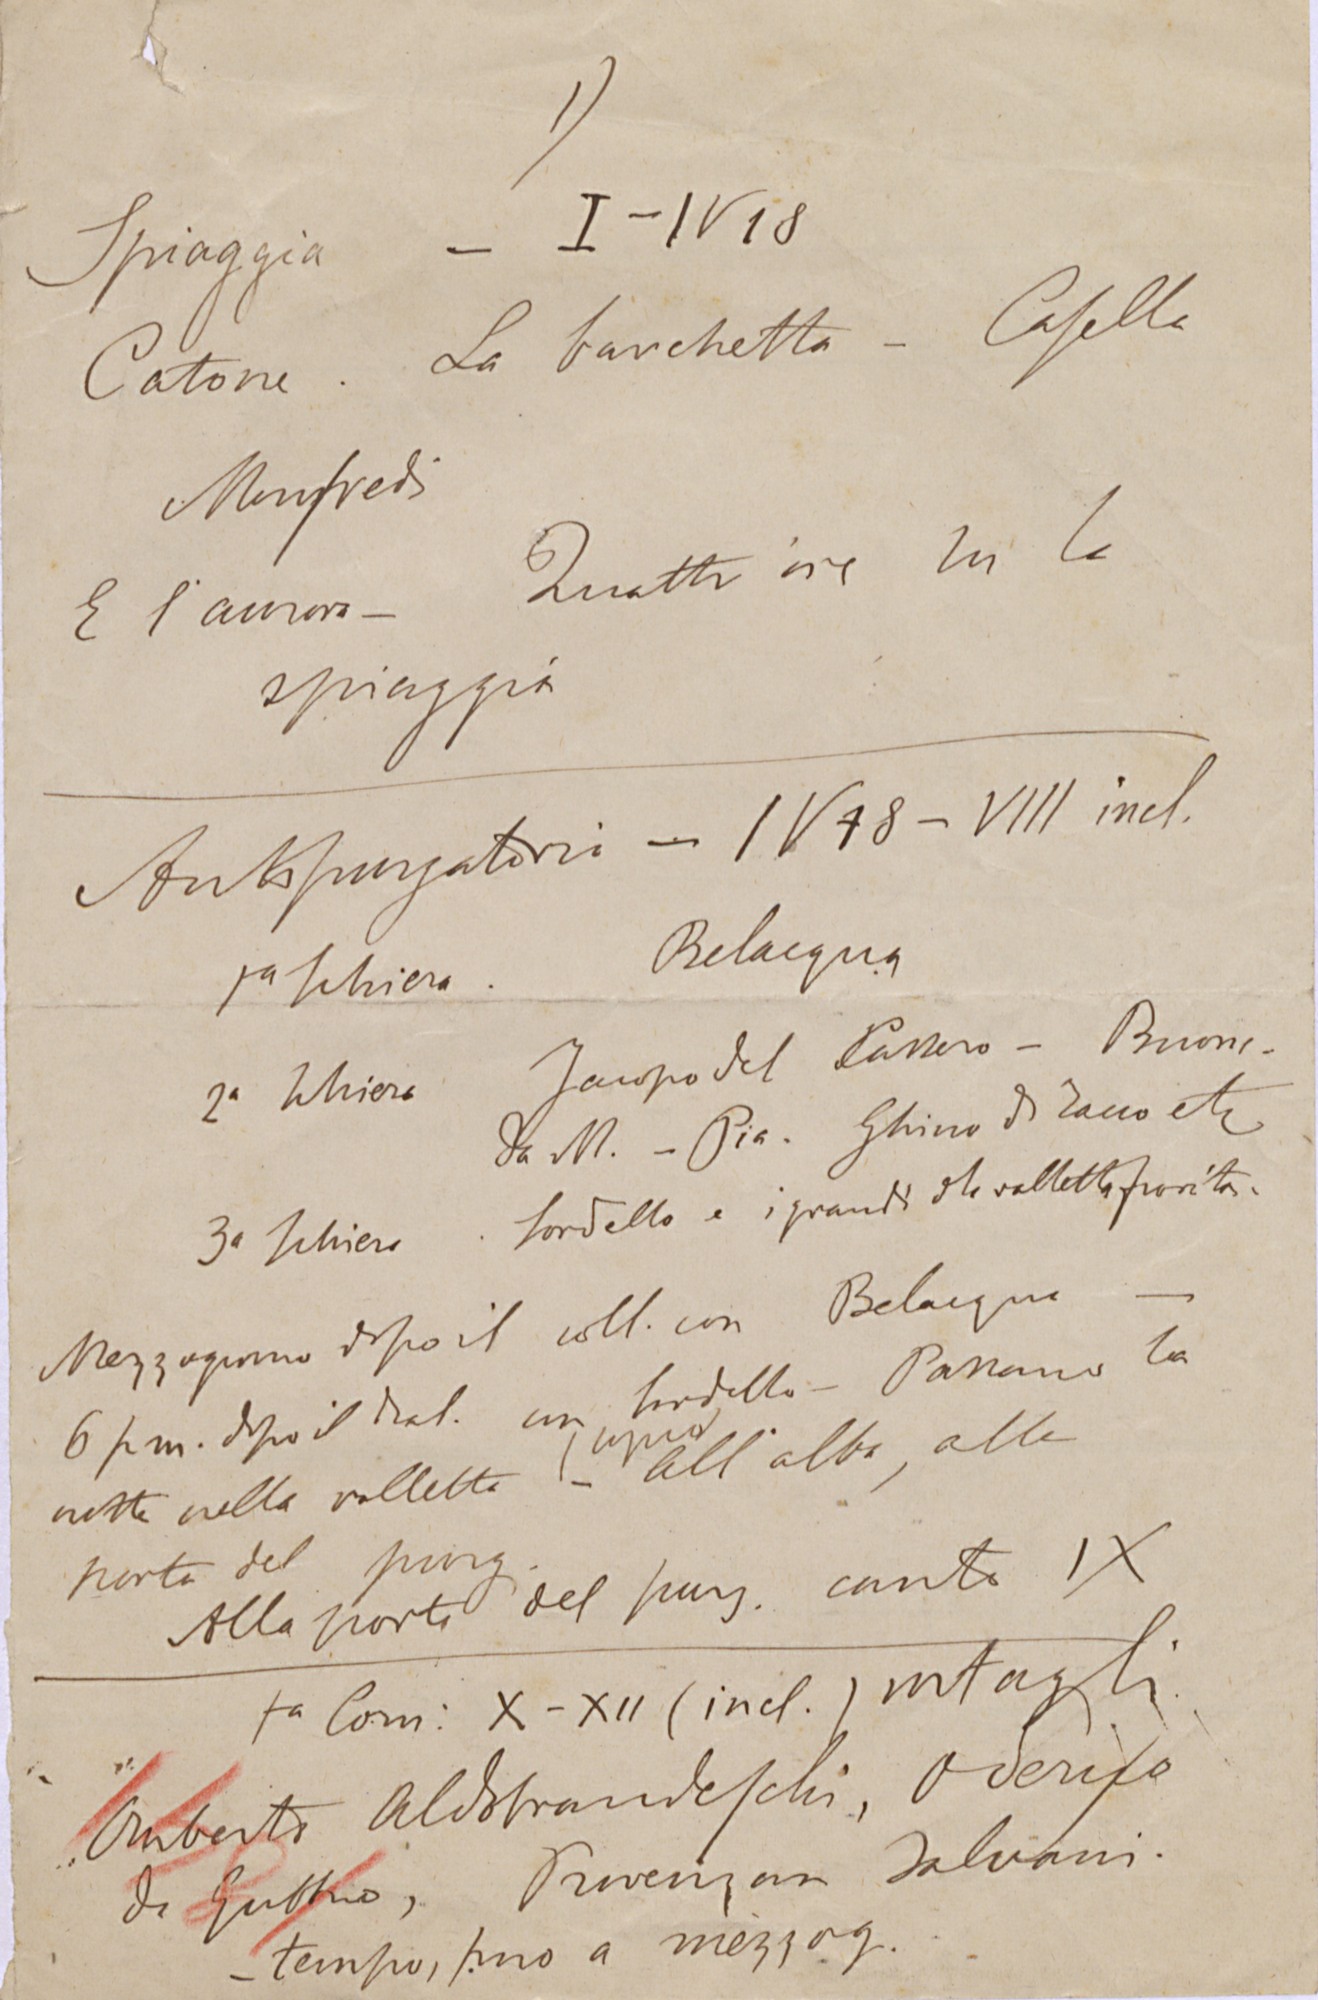 1)
Spiaggia – I – IV 18
Catone . La barchetta – Casella
Manfredi
E l'aurora – Quattr'ore su la
spiaggia
Antipurgatorio – IV 18 – VIII incl.
1ª Schiera . Belacqua
2ª Schiera Jacopo del Cassero – Buonc.
da M. – Pia. Ghino di Tacco etc
3ª Schiera . Sordello e i grandi d la valletta fiorita.
Mezzogiorno dopo il coll. con Belacqua –
6 p m. dopo il dial. con Sordello – Passano la
notte nella valletta – All'alba, alla
porta del purg.
Alla porta del purg. canto IX
1ª Corn: X – XII (incl.)
Omberto Aldobrandeschi, Oderisa
da Gubbio, Provenzan Salvani.
– tempo, fino a mezzog.